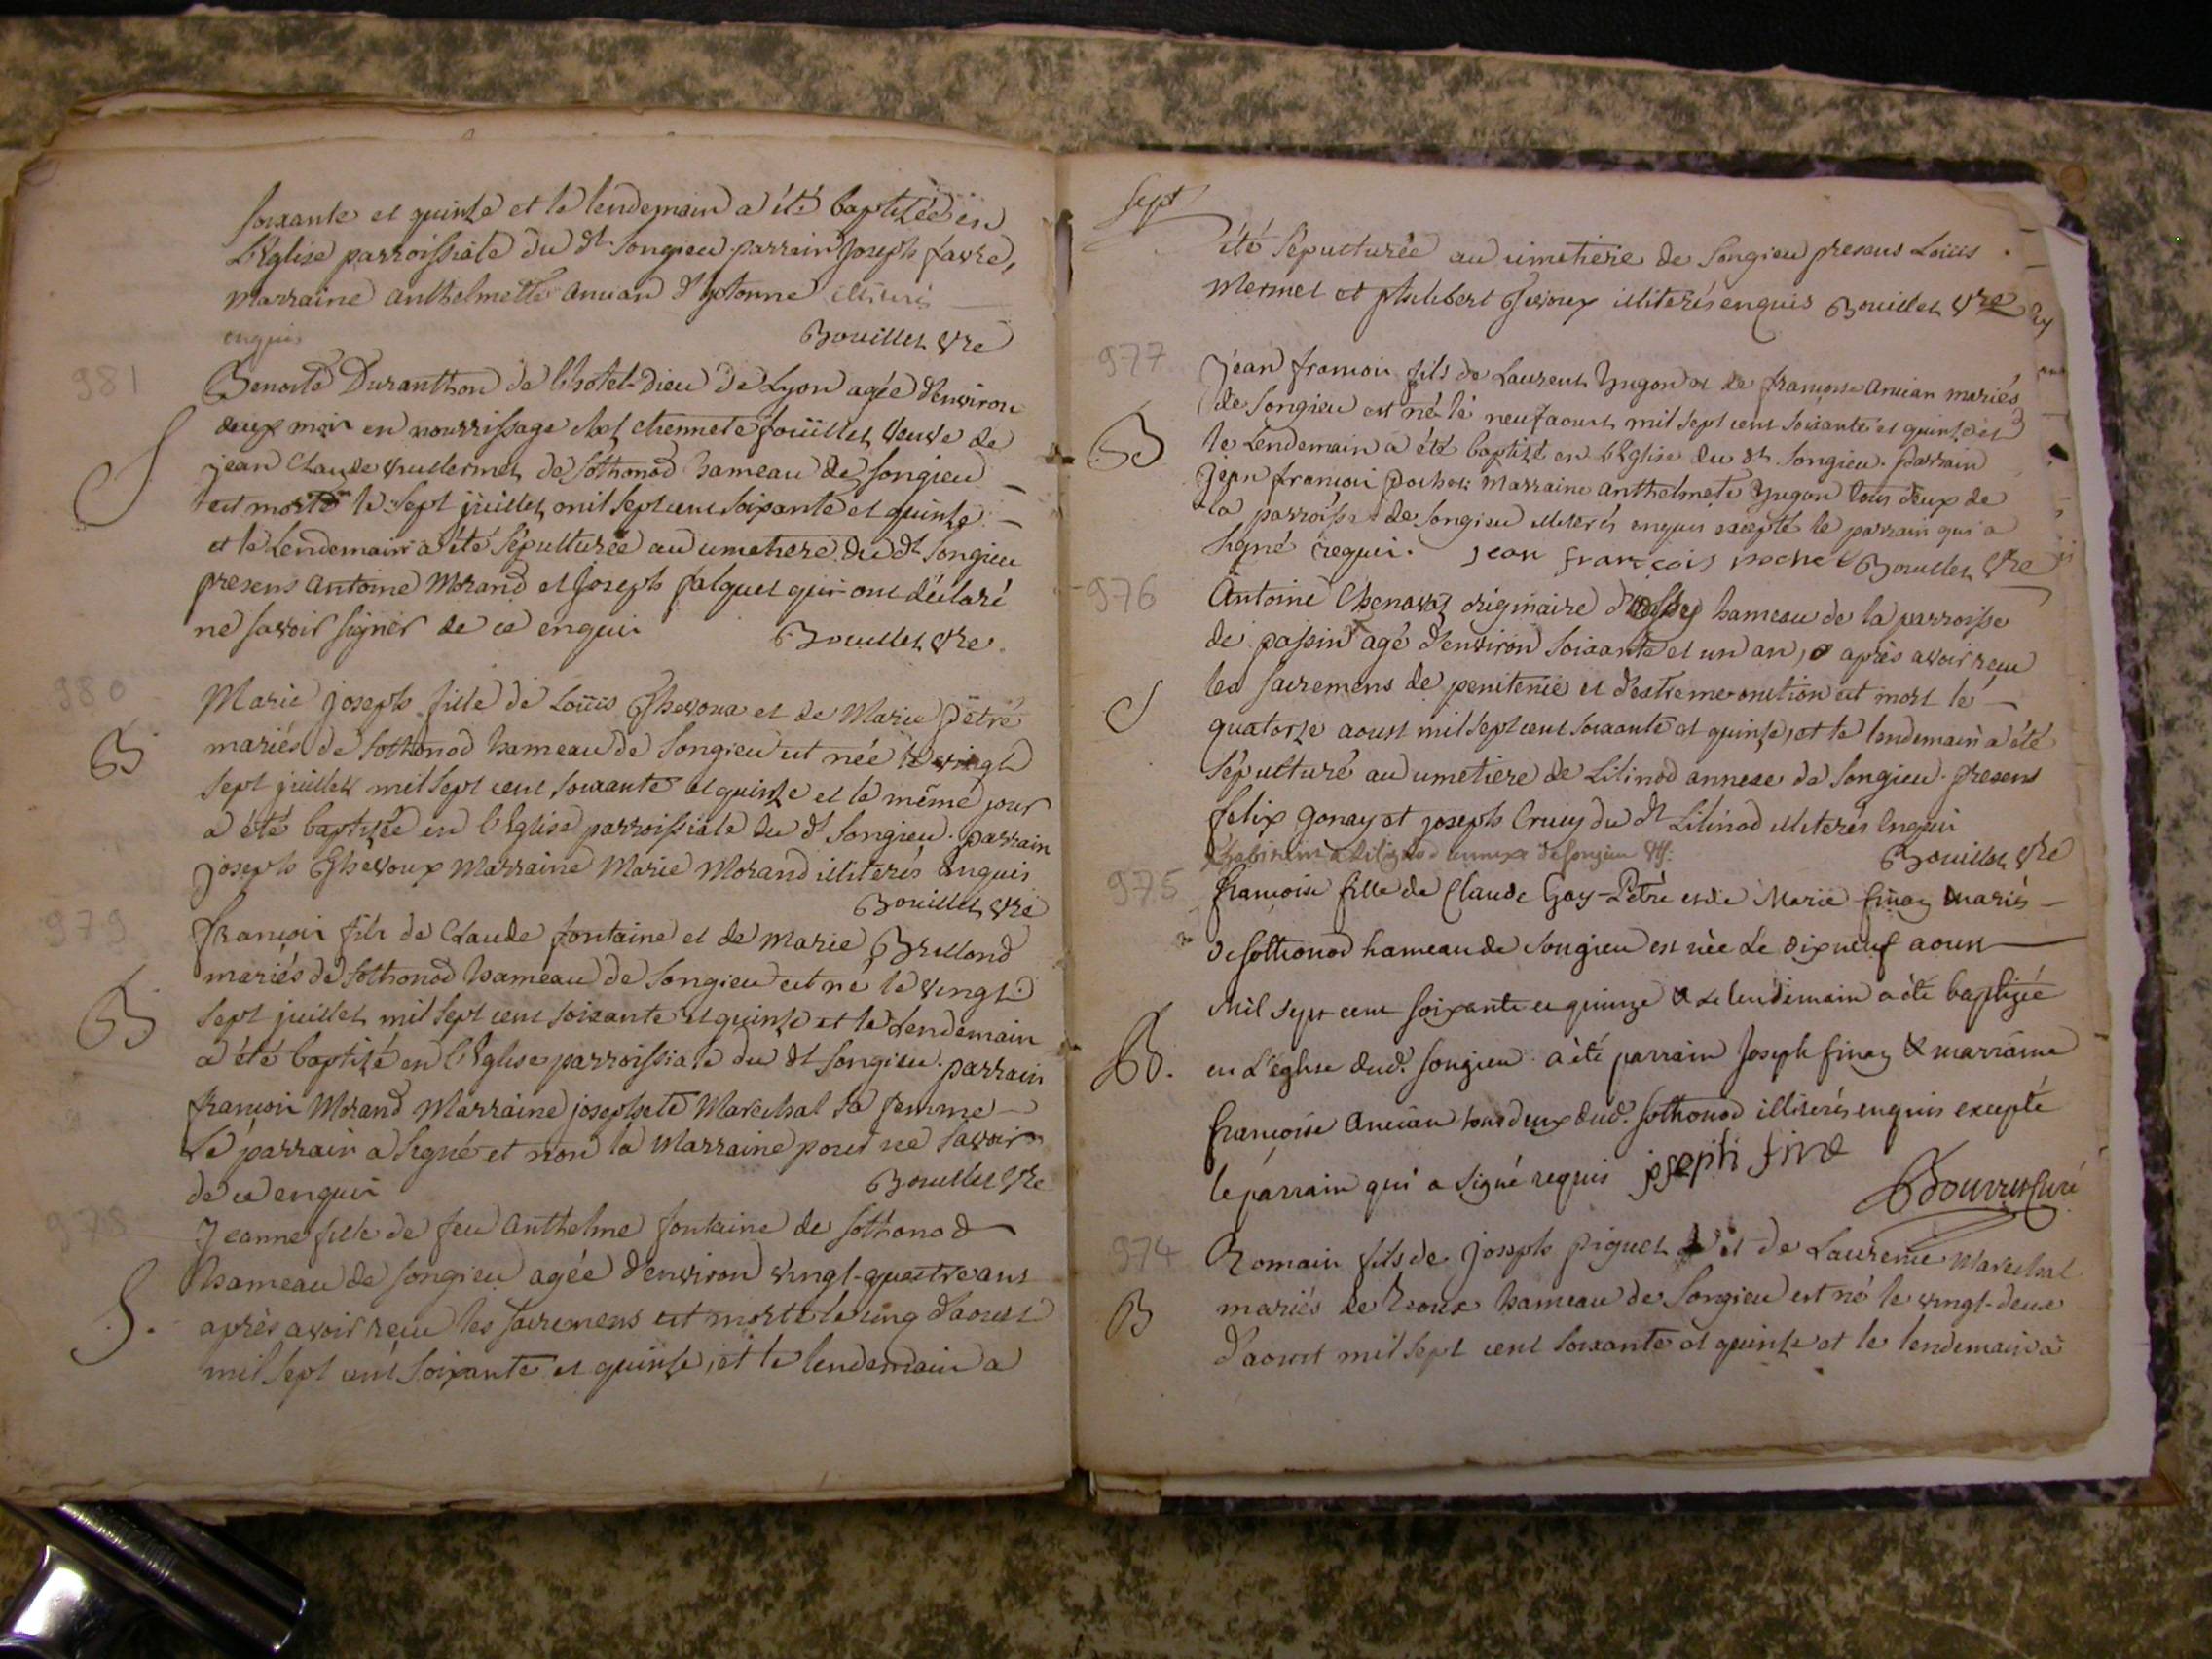 soixante et quinze et le lendemain a été baptizée en
L'Eglise parroissiale du dt Songieu. parrain Joseph favre,
Marraine anthelmette Anvian d'hotonne illiterés
enquis
Bouillet vre
981
Benoite Duranthon de l'hotel-Dieu de Lyon agée d'environ
deux mois en nourrissage chez Etiennete foüillet veuve de
S
jean Claude vuillermet de Sothonod hameau de Songieu
est morte le sept juillet mil sept cent soixante et quinze
et le Lendemain a été sépulturée au cimetiere du dt Songieu
presens Antoine Morand et Joseph falquet qui ont déclaré
ne savoir signer de ce enquis Bouillet vre.
980
Marie Joseph fille de Loüis Thevoux et de Marie Pétré
B
mariés de Sothonod hameau de Songieu est née le vingt
sept juillet mil sept cent soixante et quinze et le même jour
a été baptizée en l'Eglise parroissiale du dt Songieu. parrain
Joseph Thevoux Marraine Marie Morand illiterés enquis
Bouillet vre
979
françois fils de Claude fontaine et de Marie Brillond
mariés de Sothonod hameau de Songieu est né le vingt
B
sept juillet mil sept cent soixante et quinze et le Lendemain
a été baptizé en l'Eglise parroissiale du dt Songieu. parrain
françois Morand Marraine josephete Marechal sa femme
Le parrain a signé et non la Marraine pour ne savoir
de ce enquis Bouillet vre
978
Jeanne fille de feu Anthelme fontaine de Sothonod
hameau de Songieu agée d'environ vingt-quatre ans
S.
après avoir reçu les sacremens est morte le cinq d'aoust
mil sept cent soixante et quinze, et le lendemain a
Sept
été sépulturée au cimetiere de Songieu presens Loüis
Mermet et philibert Thevoux illiterés enquis Bouillet vre
977
Jean françois fils de Laurent Yugon et de françoise Anvian mariés
de Songieu est né le neuf aoust mil sept cent soixante et quinze et
B
le Lendemain a été baptizé en l'Eglise du dt Songieu. Parrain
Jean françois Pochet Marraine Anthelmete Yugon tous deux de
la parroisse de Songieu illiterés enquis excepté le parrain qui a
signé requis. jean françois pochet Bouillet vre
976
Antoine Chenavaz originaire d' hameau de la parroisse
de passin agé d'environ soixante et un an, après avoir reçu
S
les sacremens de penitence et d'extreme-onction est mort le
quatorze aoust mil sept cent soixante et quinze, et le lendemain a été
sépulturé au cimetiere de Lilinod annexe de Songieu. presens
felix Gonay et joseph Cruy du dt Lilinod illiterés enquis
habitant a Lilignod annexe de Songieu
Bouillet vre
975
françoise fille de Claude Gay-Pétré et de Marie finaz mariés
de sothonod hameau de Songieu est née le dix neuf aoust
mil sept cent soixante et quinze & le lendemain a été baptizée
B.
en L'eglise dud. songieu a été parrain Joseph finaz & marraine
françoise Anvian tous deux dud. sothonod illiterés enquis excepté
le parrain qui a signé requis joseph fina
Bouvret Curé
974
Romain fils de Joseph Piquet et de Laurence Marechal
B
mariés de hameau de Songieu est né le vingt-deux
d'aoust mil sept cent soixante et quinze et le lendemain a